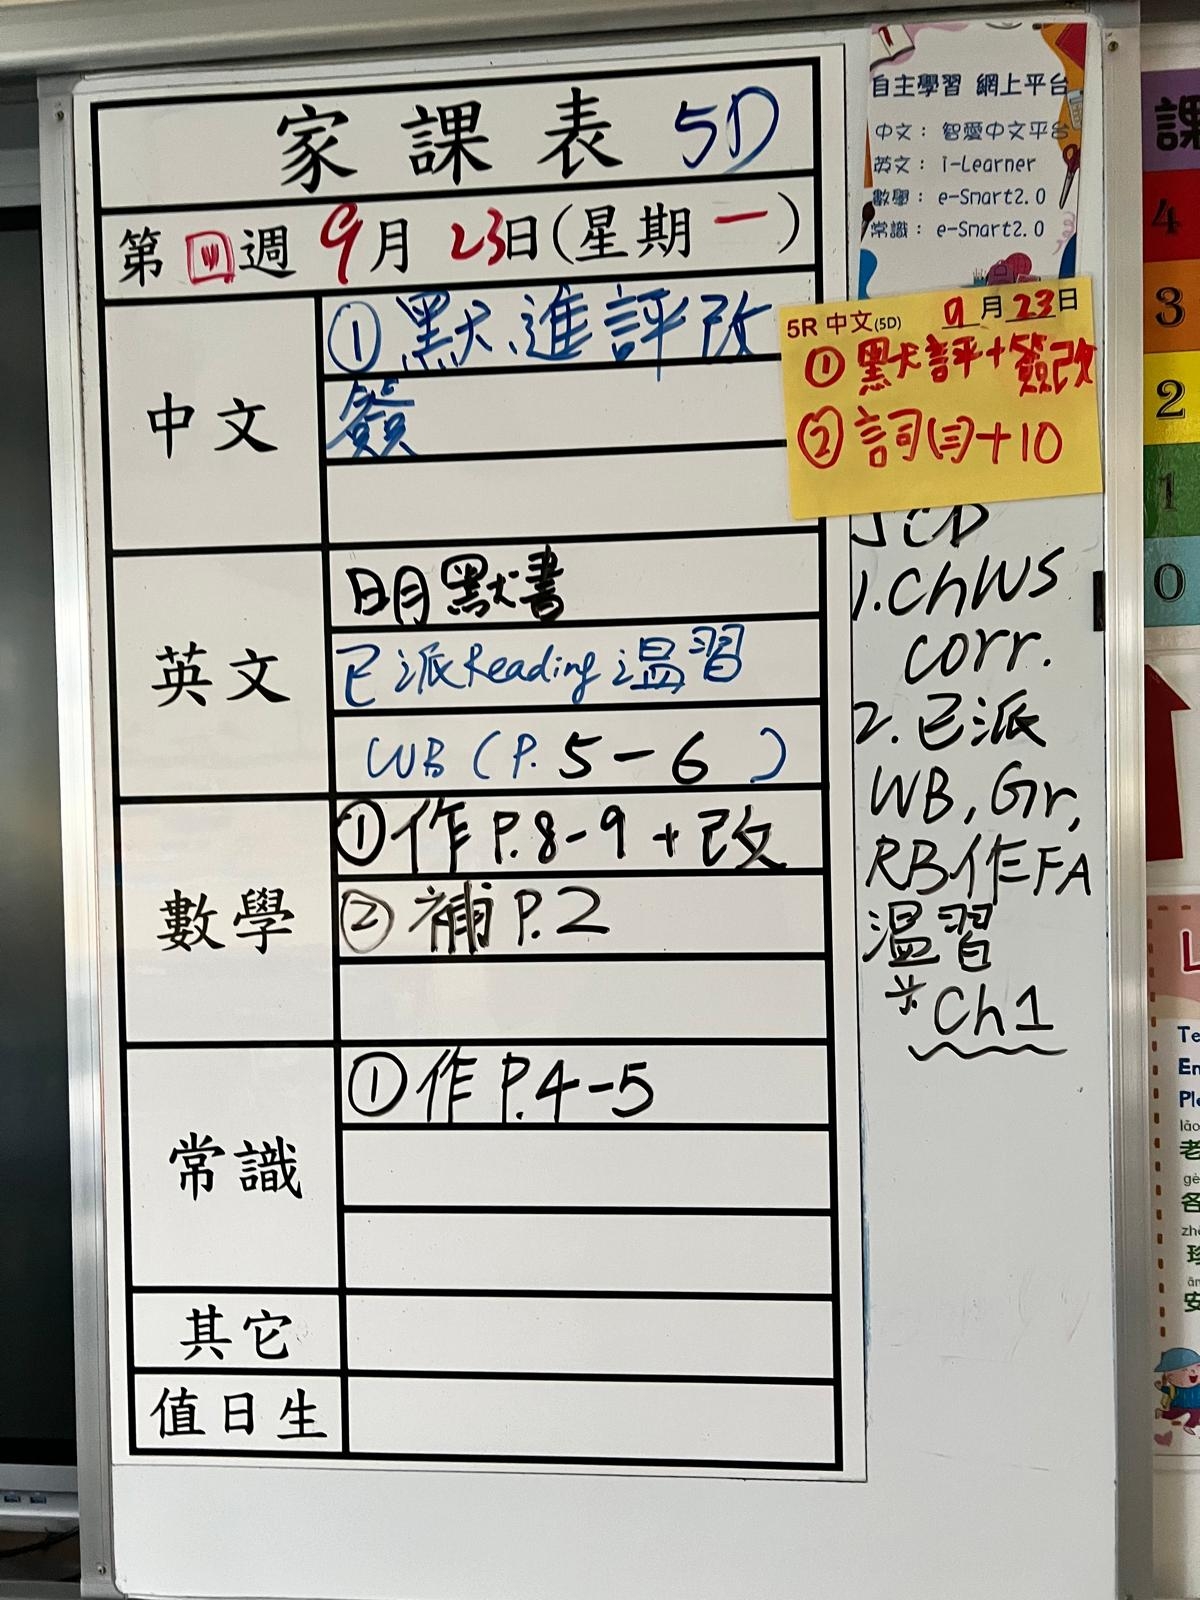 家課表 5D
第四週 9月23日(星期一)
中文
①默進評改
簽
英文
明默書
已派Reading溫習
WB (P.5-6)
數學
①作P.8-9+改
②補P.2
常識
①作P.4-5
其它
值日生
自主學習 網上平台
中文： 智愛中文平台
英文： i-Learner
數學： e-Smart2.0
常識： e-Smart2.0
5R 中文(5D) 9月23日
①默評+簽改
②詞(三)+10
1.ChWS
corr.
2.已派
WB,Gr,
RB作FA
溫習
*Ch1
課
4
3
2
1
0
L
Te
En
Ple
lǎo
老
gè
各
zhě
珍
ān
安